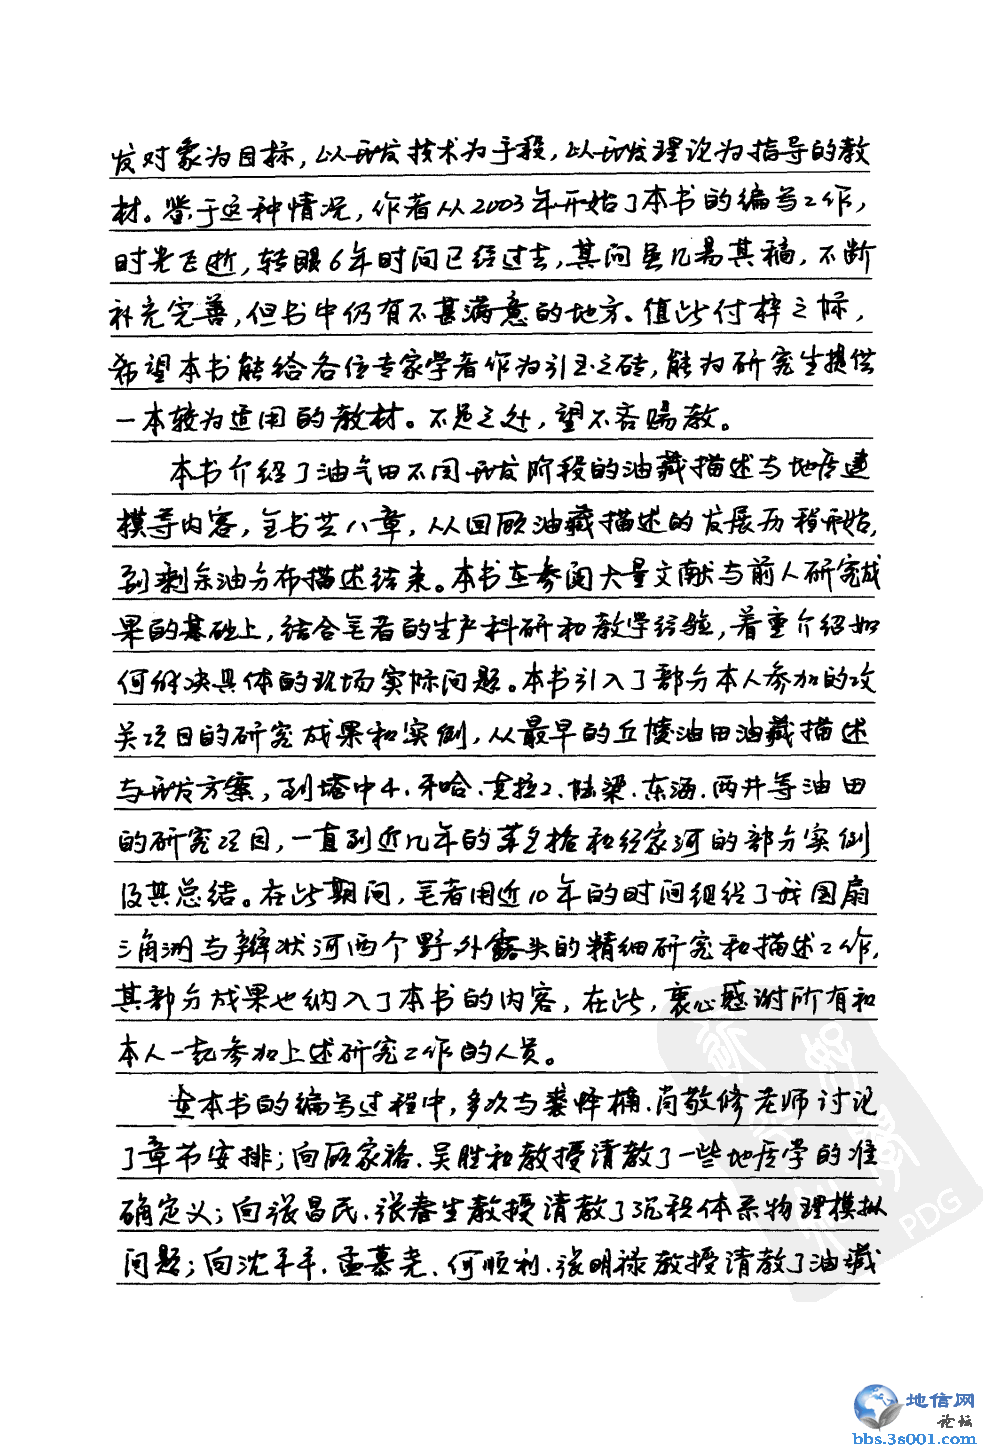 发对象为目标，以开发技术为手段，以开发理论为指导的教
材。鉴于这种情况，作者从2003年开始了本书的编写工作，
时光飞逝，转眼6年时间已经过去，其间虽几易其稿，不断
补充完善，但书中仍有不甚满意的地方。值此付梓之际，
希望本书能给各位专家学者作为引玉之砖，能为研究生提供
一本较为适用的教材。不足之处，望不吝赐教。
本书介绍了油气田不同开发阶段的油藏描述与地质建
模等内容，全书共八章，从回顾油藏描述的发展历程开始，
到剩余油分布描述结束。本书在参阅大量文献与前人研究成
果的基础上，结合笔者的生产科研和教学经验，着重介绍如
何解决具体的现场实际问题。本书引入了部分本人参加的攻
关项目的研究成果和实例，从最早的丘陵油田油藏描述
与开发方案，到塔中4、牙哈、克拉2、陆梁、东海、两井等油田
的研究项目，一直到近几年的苏里格和经家河的部分实例
及其总结。在此期间，笔者用近10年的时间组织了我国扇
三角洲与辫状河两个野外露头的精细研究和描述工作，
其部分成果也纳入了本书的内容，在此，衷心感谢所有和
本人一起参加上述研究工作的人员。
在本书的编写过程中，多次与裘怿楠、尚敬修老师讨论
了章节安排；向顾家裕、吴胜和教授请教了一些地质学的准
确定义；向张昌民、张春生教授请教了沉积体系物理模拟
问题；向沈平平、孟慕尧、何顺利、张明禄教授请教了油藏
PDG
地信网
论坛
bbs.3s001.com